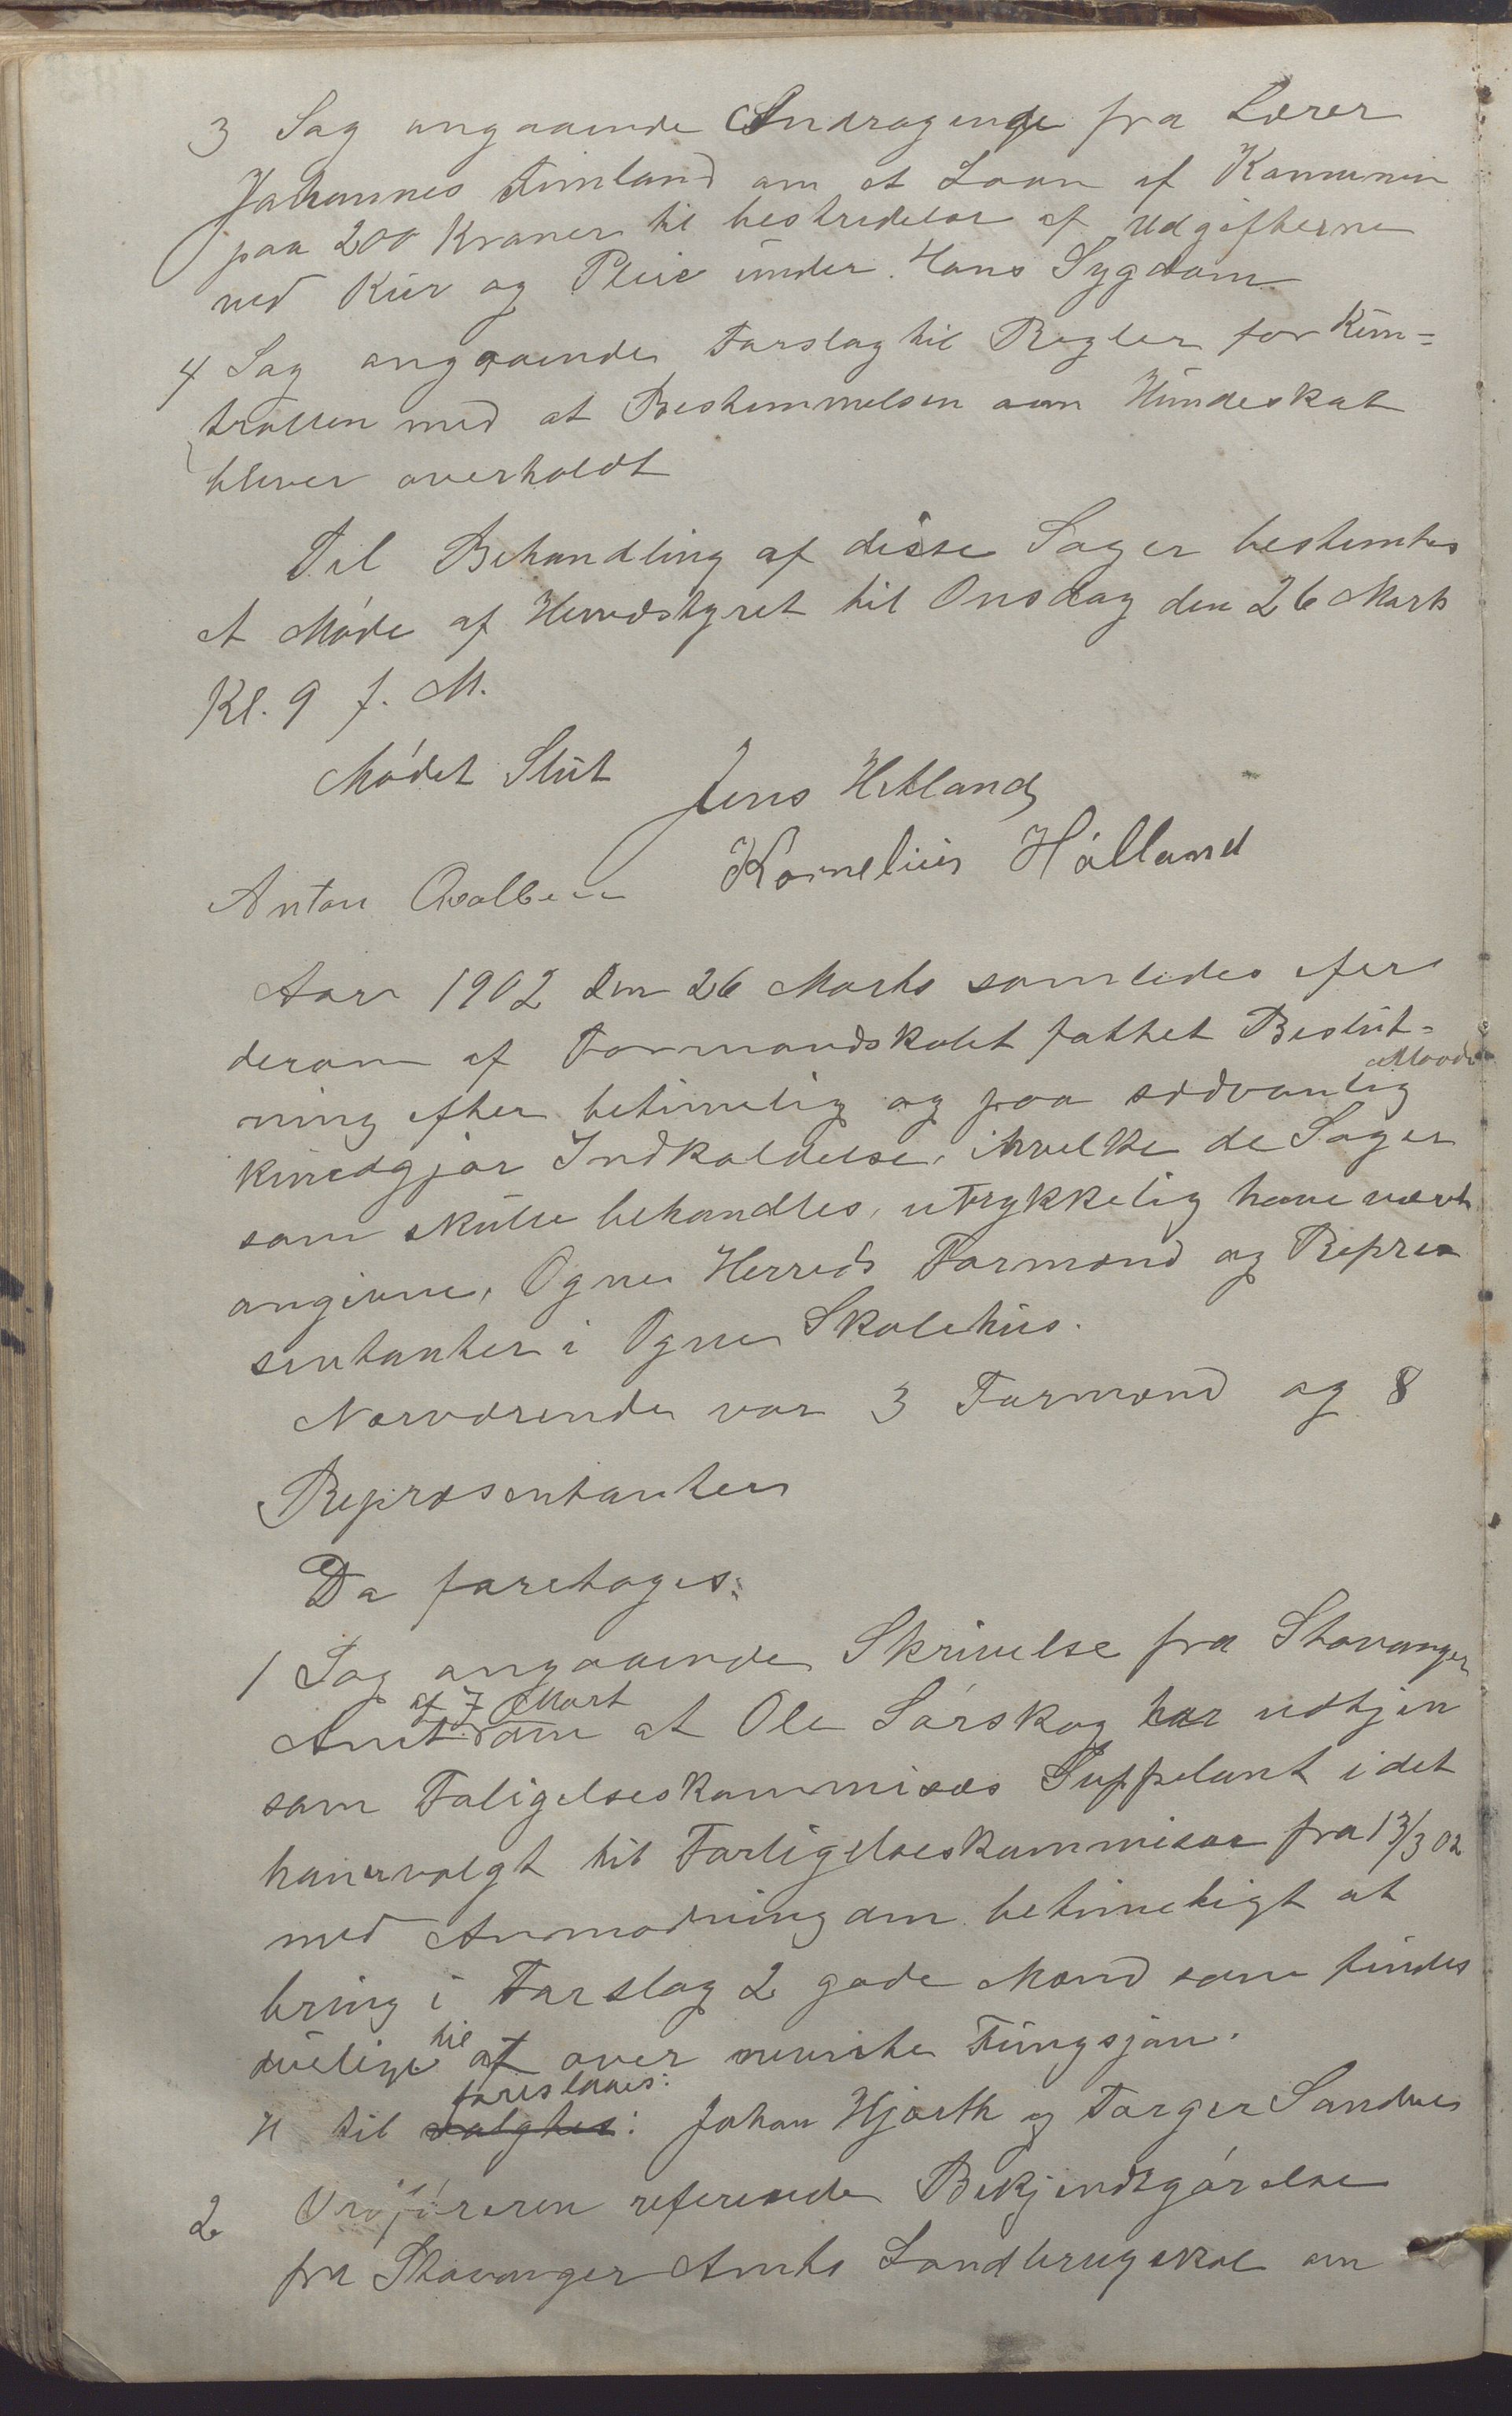 3 Sag angaaende Andragende fra Lærer
Johannes Fimland om et Laan af Kommunen
paa 200 Kroner til bestridelse af Udgifterne
ved Kur og Pleie under Hans Sygdom
4 Sag angaaende Forslag til Regler for Kun=
trollen med at Bestemmelsen om Hundeskat
bliver overholdt
Til Behandling af disse Sager bestemtes
et Møde af Herredstyret til Onsdag den 26 Marts
Kl. 9 f. M.
Mødet Slut Jens Hetland
Kornelius Hålland
Anton
Aar 1902 den 26 Marts samledes efter
derom af Formandskabet fattet Beslut=
ning efter betimelig og paa sædvanlig Maade
kundgjør Indkaldelse, ihvilke de Sager
som skulle behandles, utrykkelig have vært
angivne, Ogne Herreds Formænd og Repre
sentanter i Ogne Skolehus.
Nærværende var 3 Formænd og 8
Repræsentanter
Da foretoges:
1 Sag angaaende Skrivelse fra Stavanger
Amt af 7 Mart om at Ole Sørskog har udtjen
som Foligelseskommisæs Suppelant idet
han er valgt til Forligelseskommisær fra 13/3 02
med Anmodning om betimeligt at
bring i Forslag 2 gode Mænd som findes
duelige til at over nevnte Fungsjon.
H til valgtes: foreslaaes: Johan Hjorth og Torger Sandnes
2 Ordføreren referende Bekjendtgørelse
fra Stavanger Amts Landbrugskole om